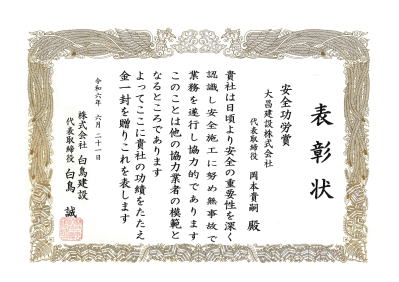 表彰状
安全功労賞
大昌建設株式会社
代表取締役 岡本貴嗣 殿
貴社は日頃より安全の重要性を深く
認識し安全施工に努め無事故で
業務を遂行し協力的であります
このことは他の協力業者の模範と
なるところであります
よってここに貴社の功績をたたえ
金一封を贈りこれを表します
令和六年 六月二十一日
株式会社 白鳥建設
代表取締役 白鳥 誠